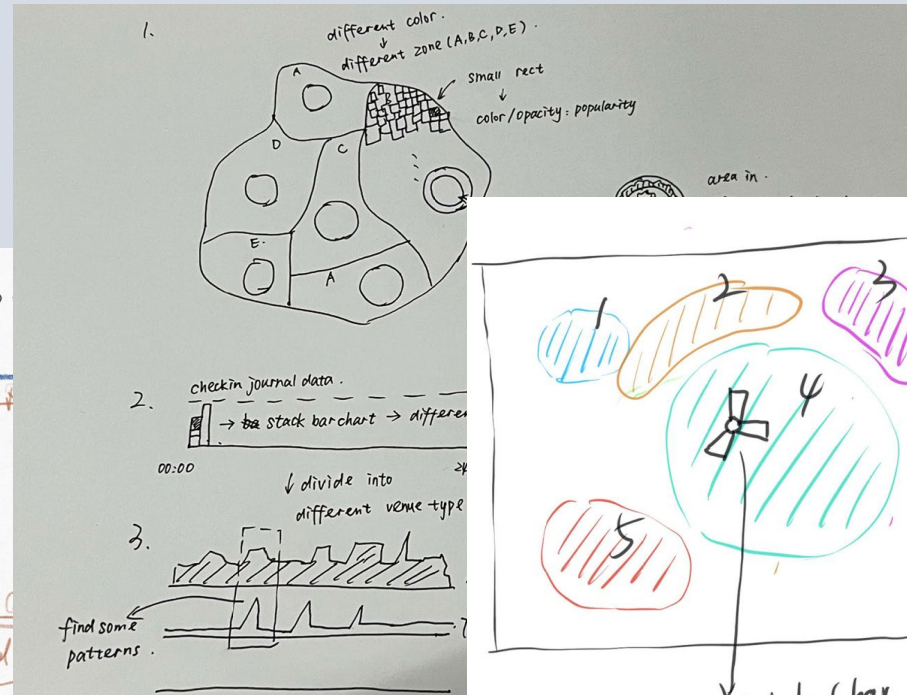 1.
different color.
different zone (A,B,C,D,E).
A
B
small rect
color/opacity: popularity
D
C
area in.
E.
A
1
2
3
4
5
2.
checkin journal data.
→ stack barchart →
00:00
divide into
different venue type
3.
find some
patterns.